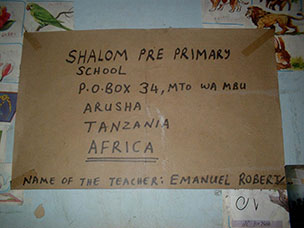 SHALOM PRE PRIMARY
SCHOOL
P.O.BOX 34, MTO WA MBU
ARUSHA
TANZANIA
AFRICA
NAME OF THE TEACHER: EMANUEL ROBERT